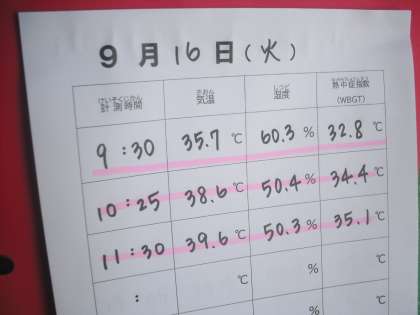 9月16日(火)
けいそくじかん きおん しつど ねっちゅうしょうしすう
計測時間 気温 湿度 熱中症指数
(WBGT)
9:30 35.7℃ 60.3% 32.8℃
10:25 38.6℃ 50.4% 34.4℃
11:30 39.6℃ 50.3% 35.1℃
: ℃ % ℃
% ℃